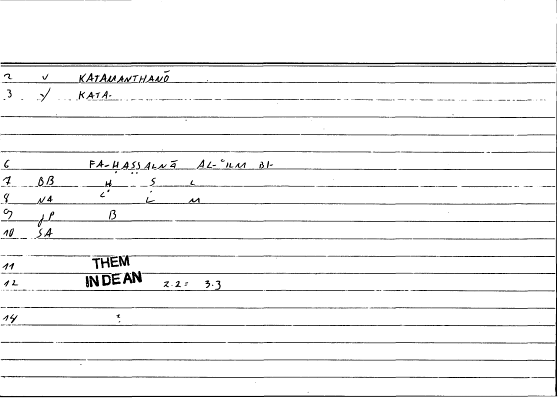 2 v KATAMANTHANŌ
3 v/ KATA-
6 FA-ḤAṢṢALNĀ AL-ʿILM BI-
7 BB Ḥ Ṣ L
8 NA ʿ L M
9 JP B
10 SA
11 THEM
12 IN DE AN 2.2= 3.3
14 :